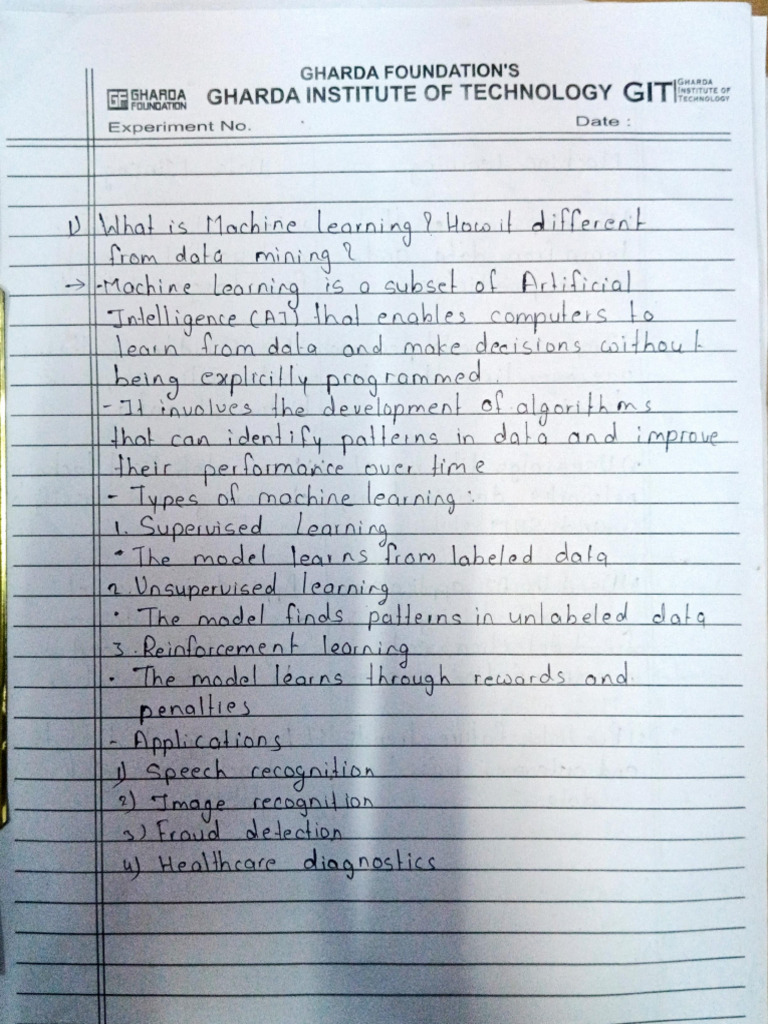 GHARDA FOUNDATION'S
GF GHARDA FOUNDATION GHARDA INSTITUTE OF TECHNOLOGY GIT GHARDA INSTITUTE OF TECHNOLOGY
Experiment No. Date :
1) What is Machine learning? How it different
from data mining?
→ -Machine Learning is a subset of Artificial
Intelligence (AI) that enables computers to
learn from data and make decisions without
being explicilly programmed.
- It involves the development of algorithms
that can identify patterns in data and improve
their performance over time
- Types of machine learning :
1. Supervised learning
• The model learns from labeled data
2. Unsupervised learning
• The model finds patterns in unlabeled data
3. Reinforcement learning
• The model learns through rewards and
penalties
- Applications
1) Speech recognition
2) Image recognition
3) Fraud detection
4) Healthcare diagnostics